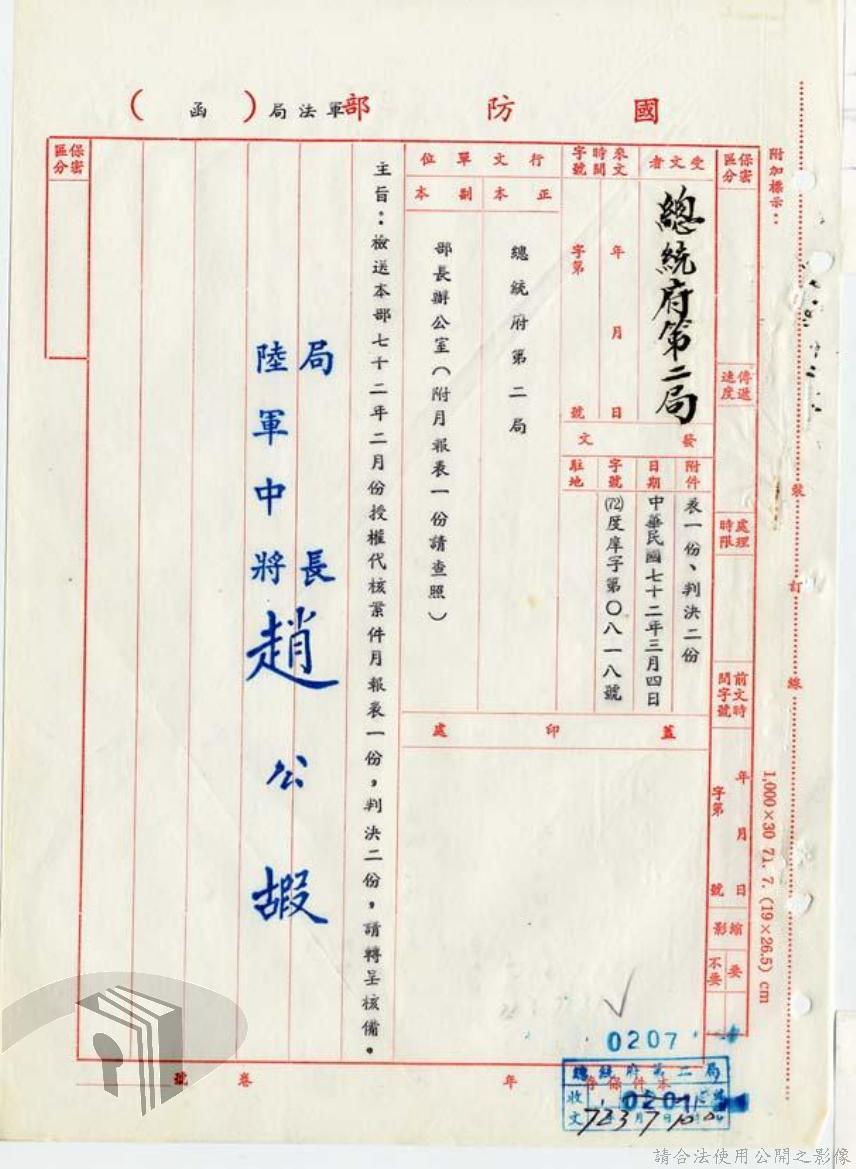 國防部軍法局(函)
附加標示：
裝訂線
1,000×30 71.7. (19×26.5) cm
保密區分
傳遞速度
處理時限
前文時間字號
年月日
字第號
縮影
要
不要
受文者
總統府第二局
來文時間字號
年月日
字第號
發文
附件
表一份、判決二份
日期
中華民國七十二年三月四日
字號
(72)度庠字第〇八一八號
駐地
行文單位
正本
總統府第二局
副本
部長辦公室(附月報表一份請查照)
蓋印處
主旨：檢送本部七十二年二月份授權代核案件月報表一份，判決二份，請轉呈核備。
局長
陸軍中將趙公嘏
保密區分
0207
總統府第二局
收文
0207
72 3 7
年
卷
號
請合法使用公開之影像